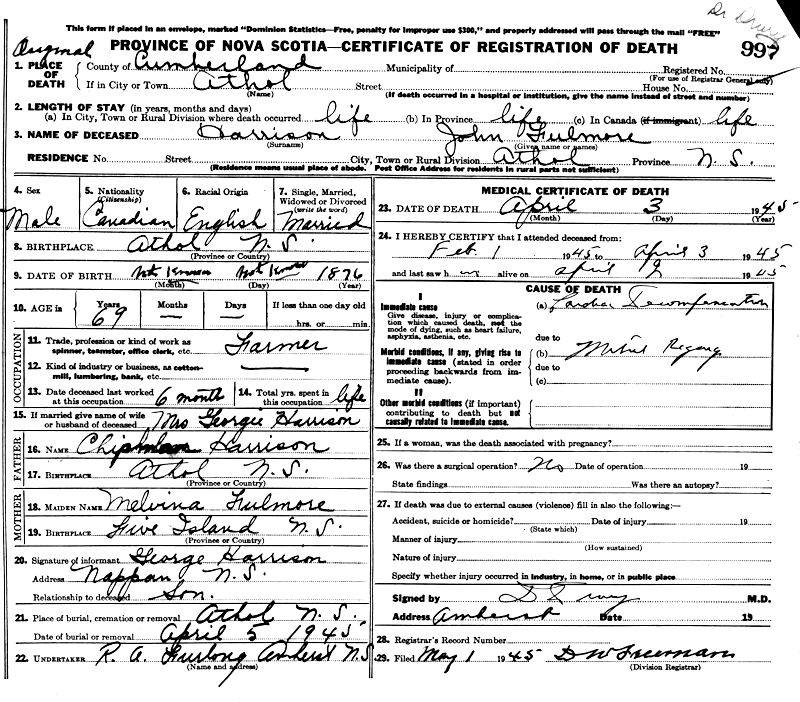 This form if placed in an envelope, marked "Dominion Statistics—Free, penalty for improper use $300," and properly addressed will pass through the mail "FREE"
Original
PROVINCE OF NOVA SCOTIA—CERTIFICATE OF REGISTRATION OF DEATH
997
1. PLACE OF DEATH
County of Cumberland Municipality of Registered No.
(For use of Registrar General only)
If in City or Town Athol Street House No.
(Name) (If death occurred in a hospital or institution, give the name instead of street and number)
2. LENGTH OF STAY (in years, months and days)
(a) In City, Town or Rural Division where death occurred life (b) In Province life (c) In Canada (if immigrant) life
3. NAME OF DECEASED Harrison John Fulmore
(Surname) (Given name or names)
RESIDENCE No. Street City, Town or Rural Division Athol Province N. S.
(Residence means usual place of abode. Post Office Address for residents in rural parts not sufficient)
4. Sex Male
5. Nationality (Citizenship) Canadian
6. Racial Origin English
7. Single, Married, Widowed or Divorced (write the word) Married
8. BIRTHPLACE Athol N. S.
(Province or Country)
9. DATE OF BIRTH Not Known Not Known 1876
(Month) (Day) (Year)
10. AGE in Years Months Days If less than one day old
69 — — hrs. or min.
OCCUPATION
11. Trade, profession or kind of work as spinner, teamster, office clerk, etc. Farmer
12. Kind of industry or business, as cotton-mill, lumbering, bank, etc. —
13. Date deceased last worked at this occupation 6 month
14. Total yrs. spent in this occupation life
15. If married give name of wife or husband of deceased Mrs Georgie Harrison
FATHER
16. NAME Chipman Harrison
17. BIRTHPLACE Athol N. S.
(Province or Country)
MOTHER
18. MAIDEN NAME Melvina Fulmore
19. BIRTHPLACE Five Island N. S.
(Province or Country)
20. Signature of informant George Harrison
Address Nappan N. S.
Relationship to deceased Son.
21. Place of burial, cremation or removal Athol N. S.
Date of burial or removal April 5 1945
22. UNDERTAKER R. A. Furlong Amherst N.S
(Name and address)
MEDICAL CERTIFICATE OF DEATH
23. DATE OF DEATH April 3 1945
(Month) (Day) (Year)
24. I HEREBY CERTIFY that I attended deceased from:
Feb. 1 1945 to April 3 1945
and last saw h alive on April 1945
CAUSE OF DEATH
I
Immediate cause
Give disease, injury or complication which caused death, not the mode of dying, such as heart failure, asphyxia, asthenia, etc.
(a) Cardiac Decompensation
due to
Morbid conditions, if any, giving rise to immediate cause (stated in order proceeding backwards from immediate cause).
(b) Mitral Regurg
due to
(c)
II
Other morbid conditions (if important) contributing to death but not causally related to immediate cause.
25. If a woman, was the death associated with pregnancy?
26. Was there a surgical operation? No Date of operation 19
State findings Was there an autopsy?
27. If death was due to external causes (violence) fill in also the following:—
Accident, suicide or homicide? Date of injury 19
(State which)
Manner of injury
(How sustained)
Nature of injury
Specify whether injury occurred in industry, in home, or in public place
Signed by M.D.
Address Amherst Date 19
28. Registrar's Record Number
29. Filed May 1 1945 D W Freeman
(Division Registrar)